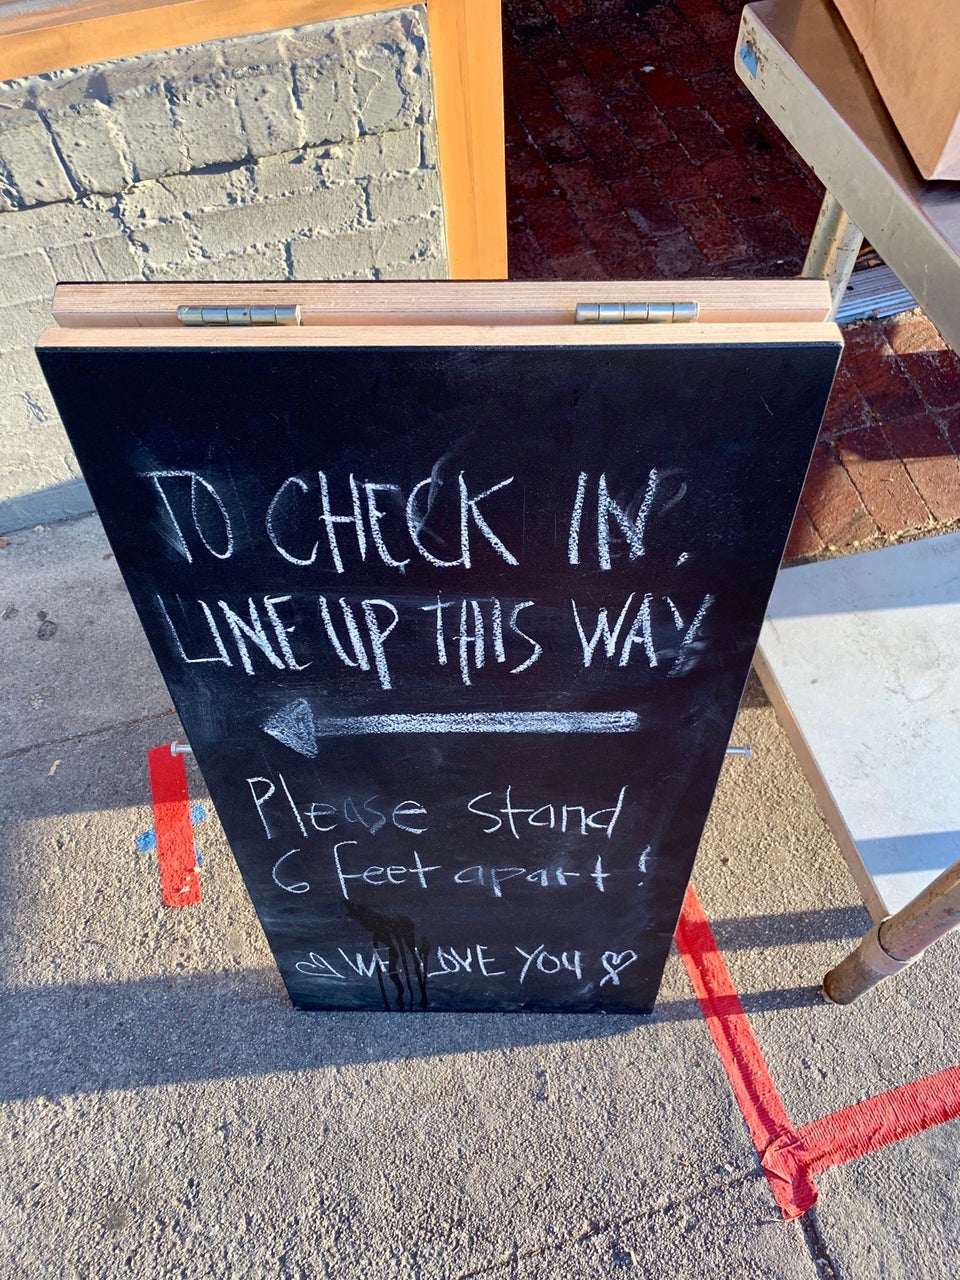 TO CHECK IN,
LINE UP THIS WAY
Please stand
6 feet apart!
WE LOVE YOU